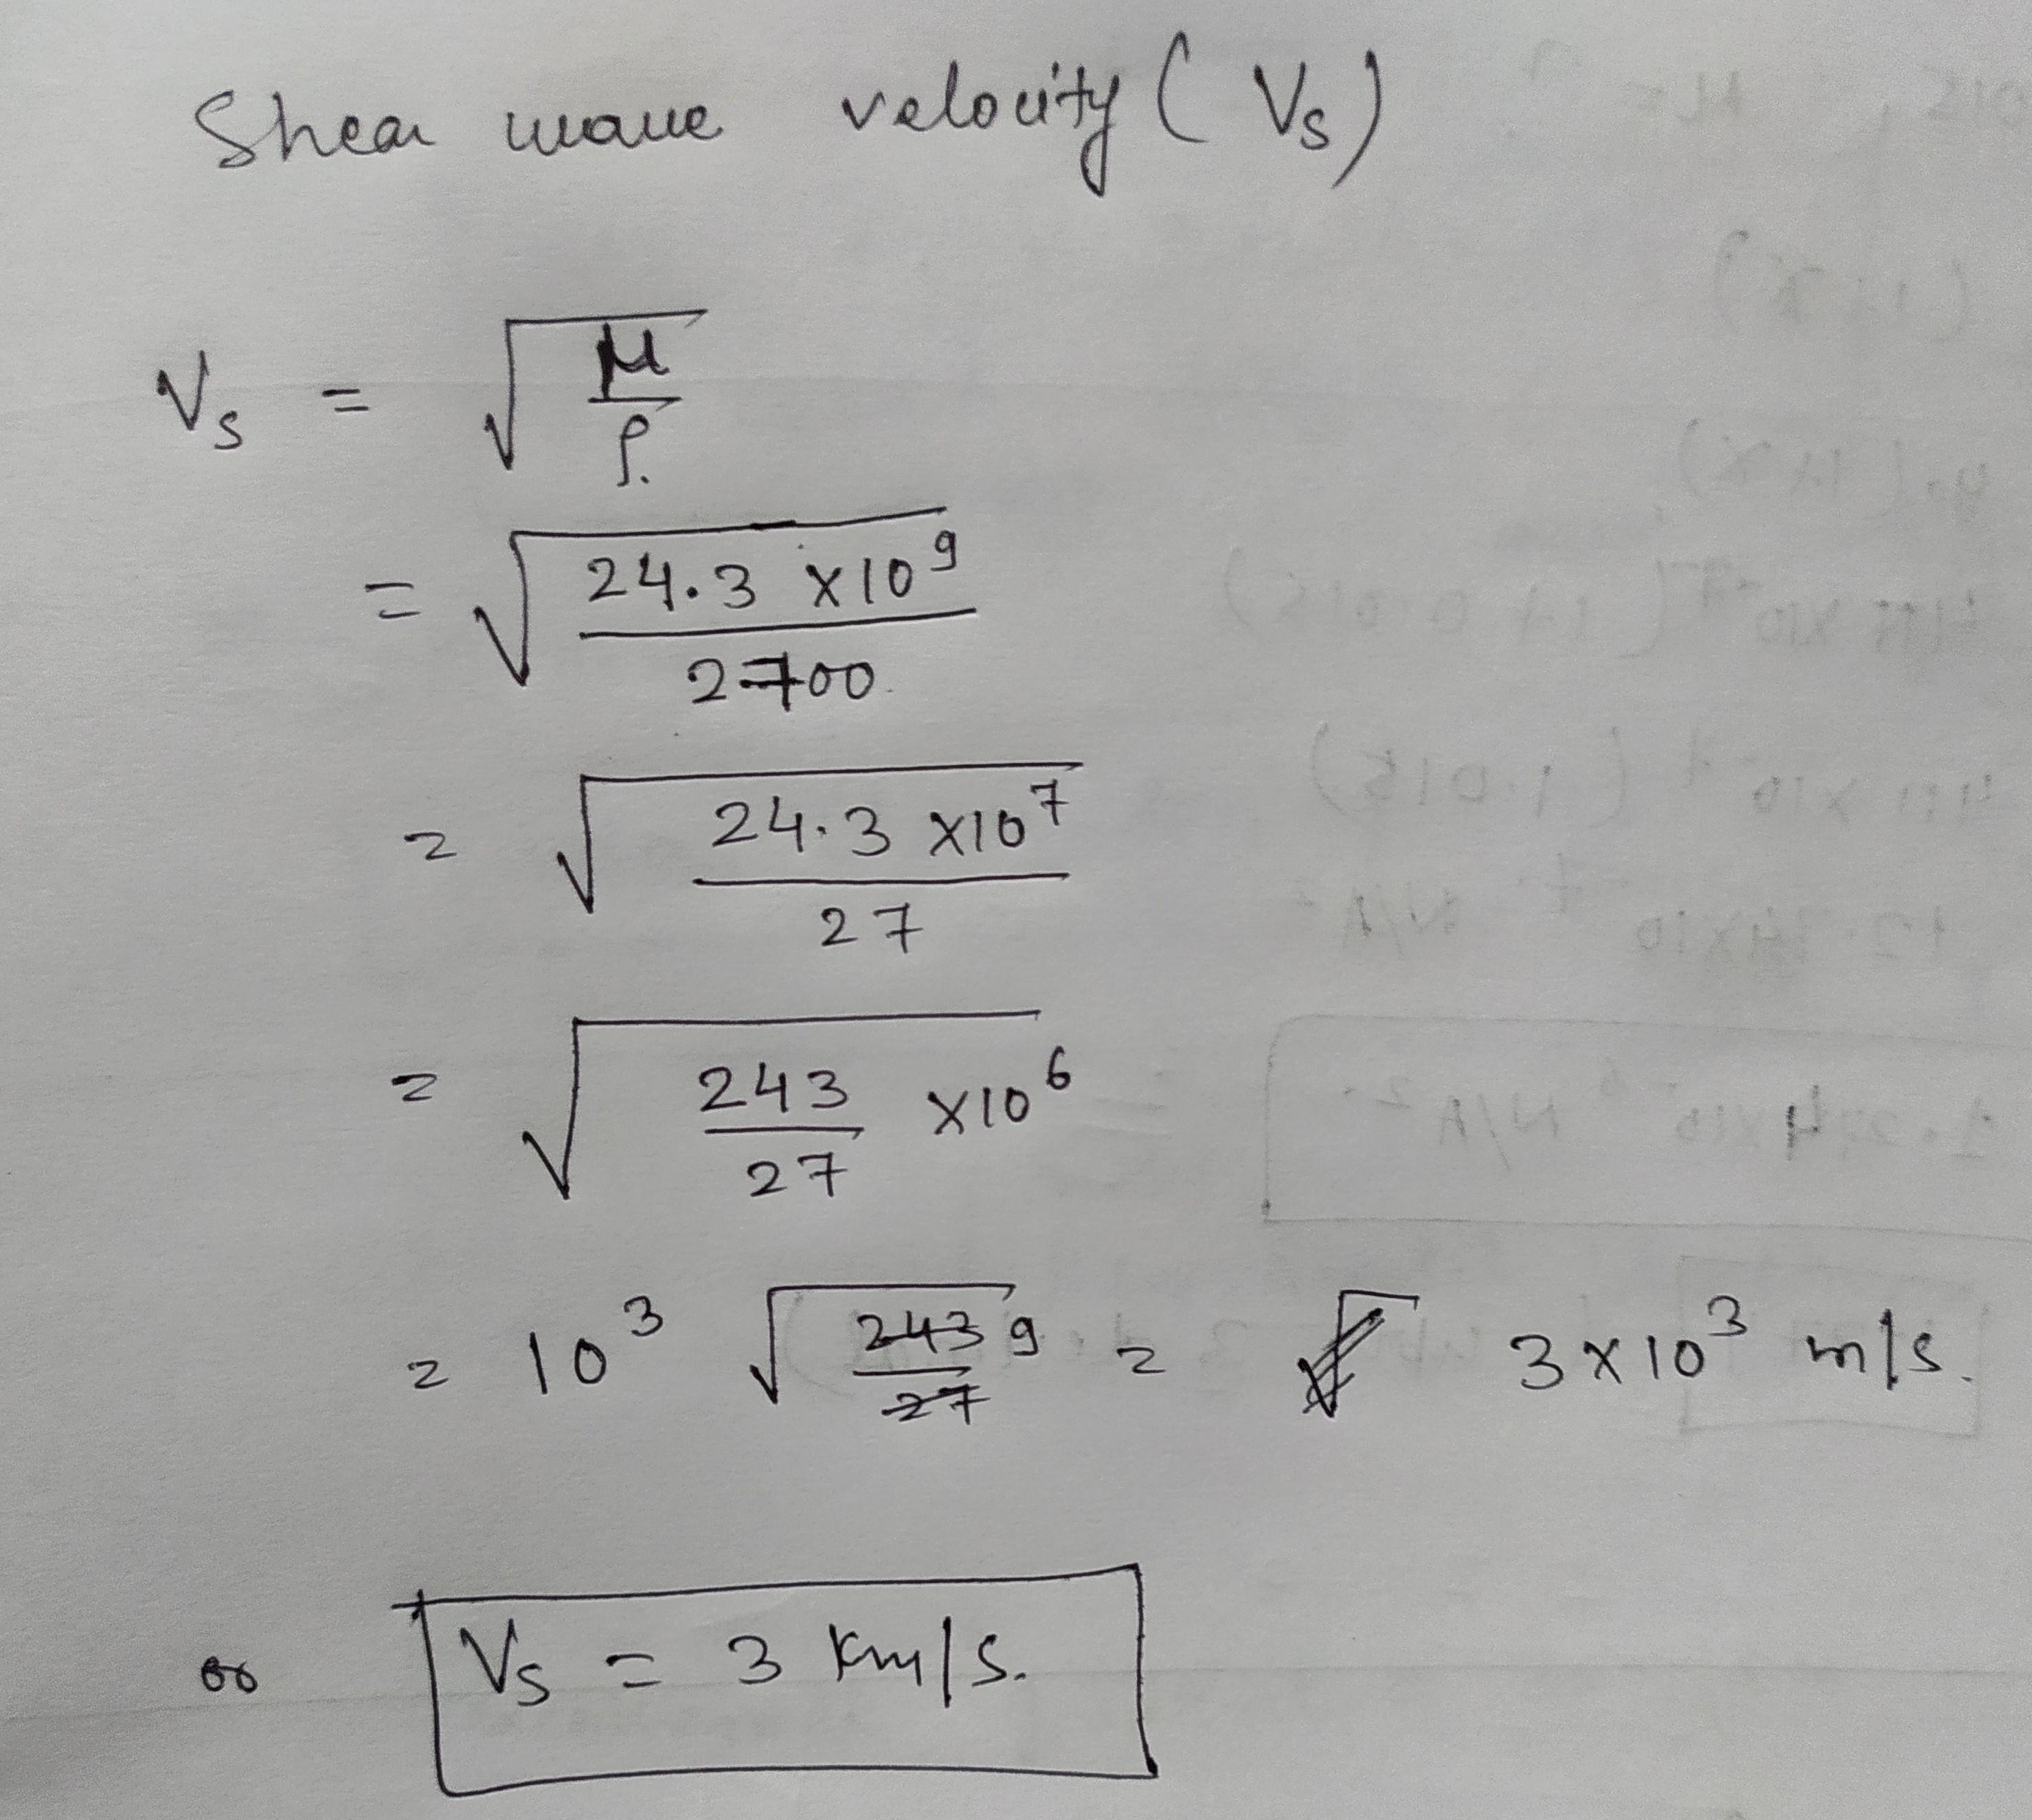 Shear wave velocity (Vs)
Vs = √(μ/ρ.)
= √(24.3 ×10⁹ / 2700)
= √(24.3 ×10⁷ / 27)
= √(243/27 ×10⁶)
= 10³ √(243/27) 9 = 3×10³ m/s.
or Vs = 3 Km/s.